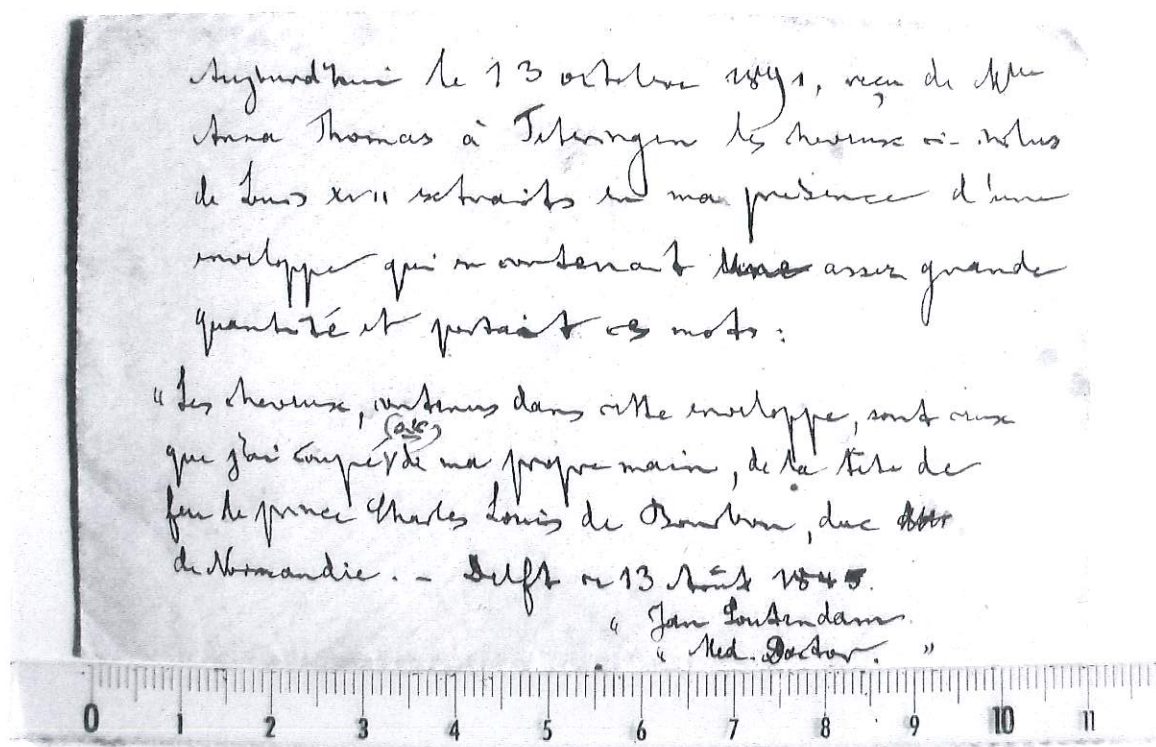 Aujourd'hui le 13 octobre 1891, reçu de Mlle
Anna Thomas à Teteringen les cheveux ci-inclus
de Louis XVII extraits en ma présence d'une
enveloppe qui en contenait une assez grande
quantité et portait ces mots :
"Les cheveux, contenus dans cette enveloppe, sont ceux
(sic)
que j'ai coupé de ma propre main, de la tête de
feu le prince Charles Louis de Bourbon, duc
de Normandie. - Delft ce 13 Août 1845.
" Jan Soutendam
" Med. Doctor. "
0 1 2 3 4 5 6 7 8 9 10 11